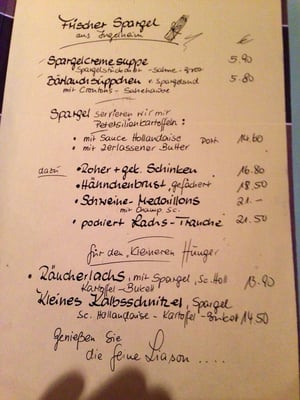 Frischer Spargel
aus Ingelheim
€
Spargelcremesuppe 5.90
Spargelstückchen - Sahne -
Bärlauchsüppchen + Spargelsud 5.80
mit Croutons - Sahnehaube
Spargel servieren wir mit
Petersilienkartoffeln :
• mit Sauce Hollandaise Port. 14.60
• mit zerlassener Butter
dazu • Roher + gek. Schinken 16.80
• Hähnchenbrust, gefächert 18.50
• Schweine-Medaillons 21.-
mit Champ. Sc.
• pochiert Lachs-Tranche 21.50
für den "Kleineren Hunger"
• Räucherlachs, mit Spargel, Sc. Holl
Kartoffel-Bukett 13.90
Kleines Kalbsschnitzel, Spargel
Sc. Hollandaise - Kartoffel - Buket 14.50
Genießen Sie
die feine Liason ....